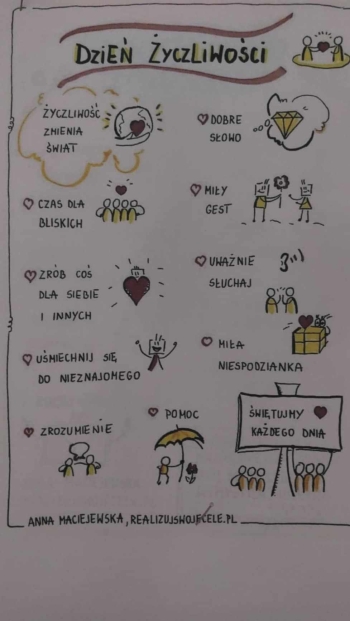 DZIEŃ ŻYCZLIWOŚCI
ŻYCZLIWOŚĆ
ZMIENIA
ŚWIAT
DOBRE
SŁOWO
CZAS DLA
BLISKICH
MIŁY
GEST
ZRÓB COŚ
DLA SIEBIE
I INNYCH
UWAŻNIE
SŁUCHAJ
UŚMIECHNIJ SIĘ
DO NIEZNAJOMEGO
MIŁA
NIESPODZIANKA
ZROZUMIENIE
POMOC
ŚWIĘTUJMY
KAŻDEGO DNIA
ANNA MACIEJEWSKA, REALIZUJSWOJECELE.PL